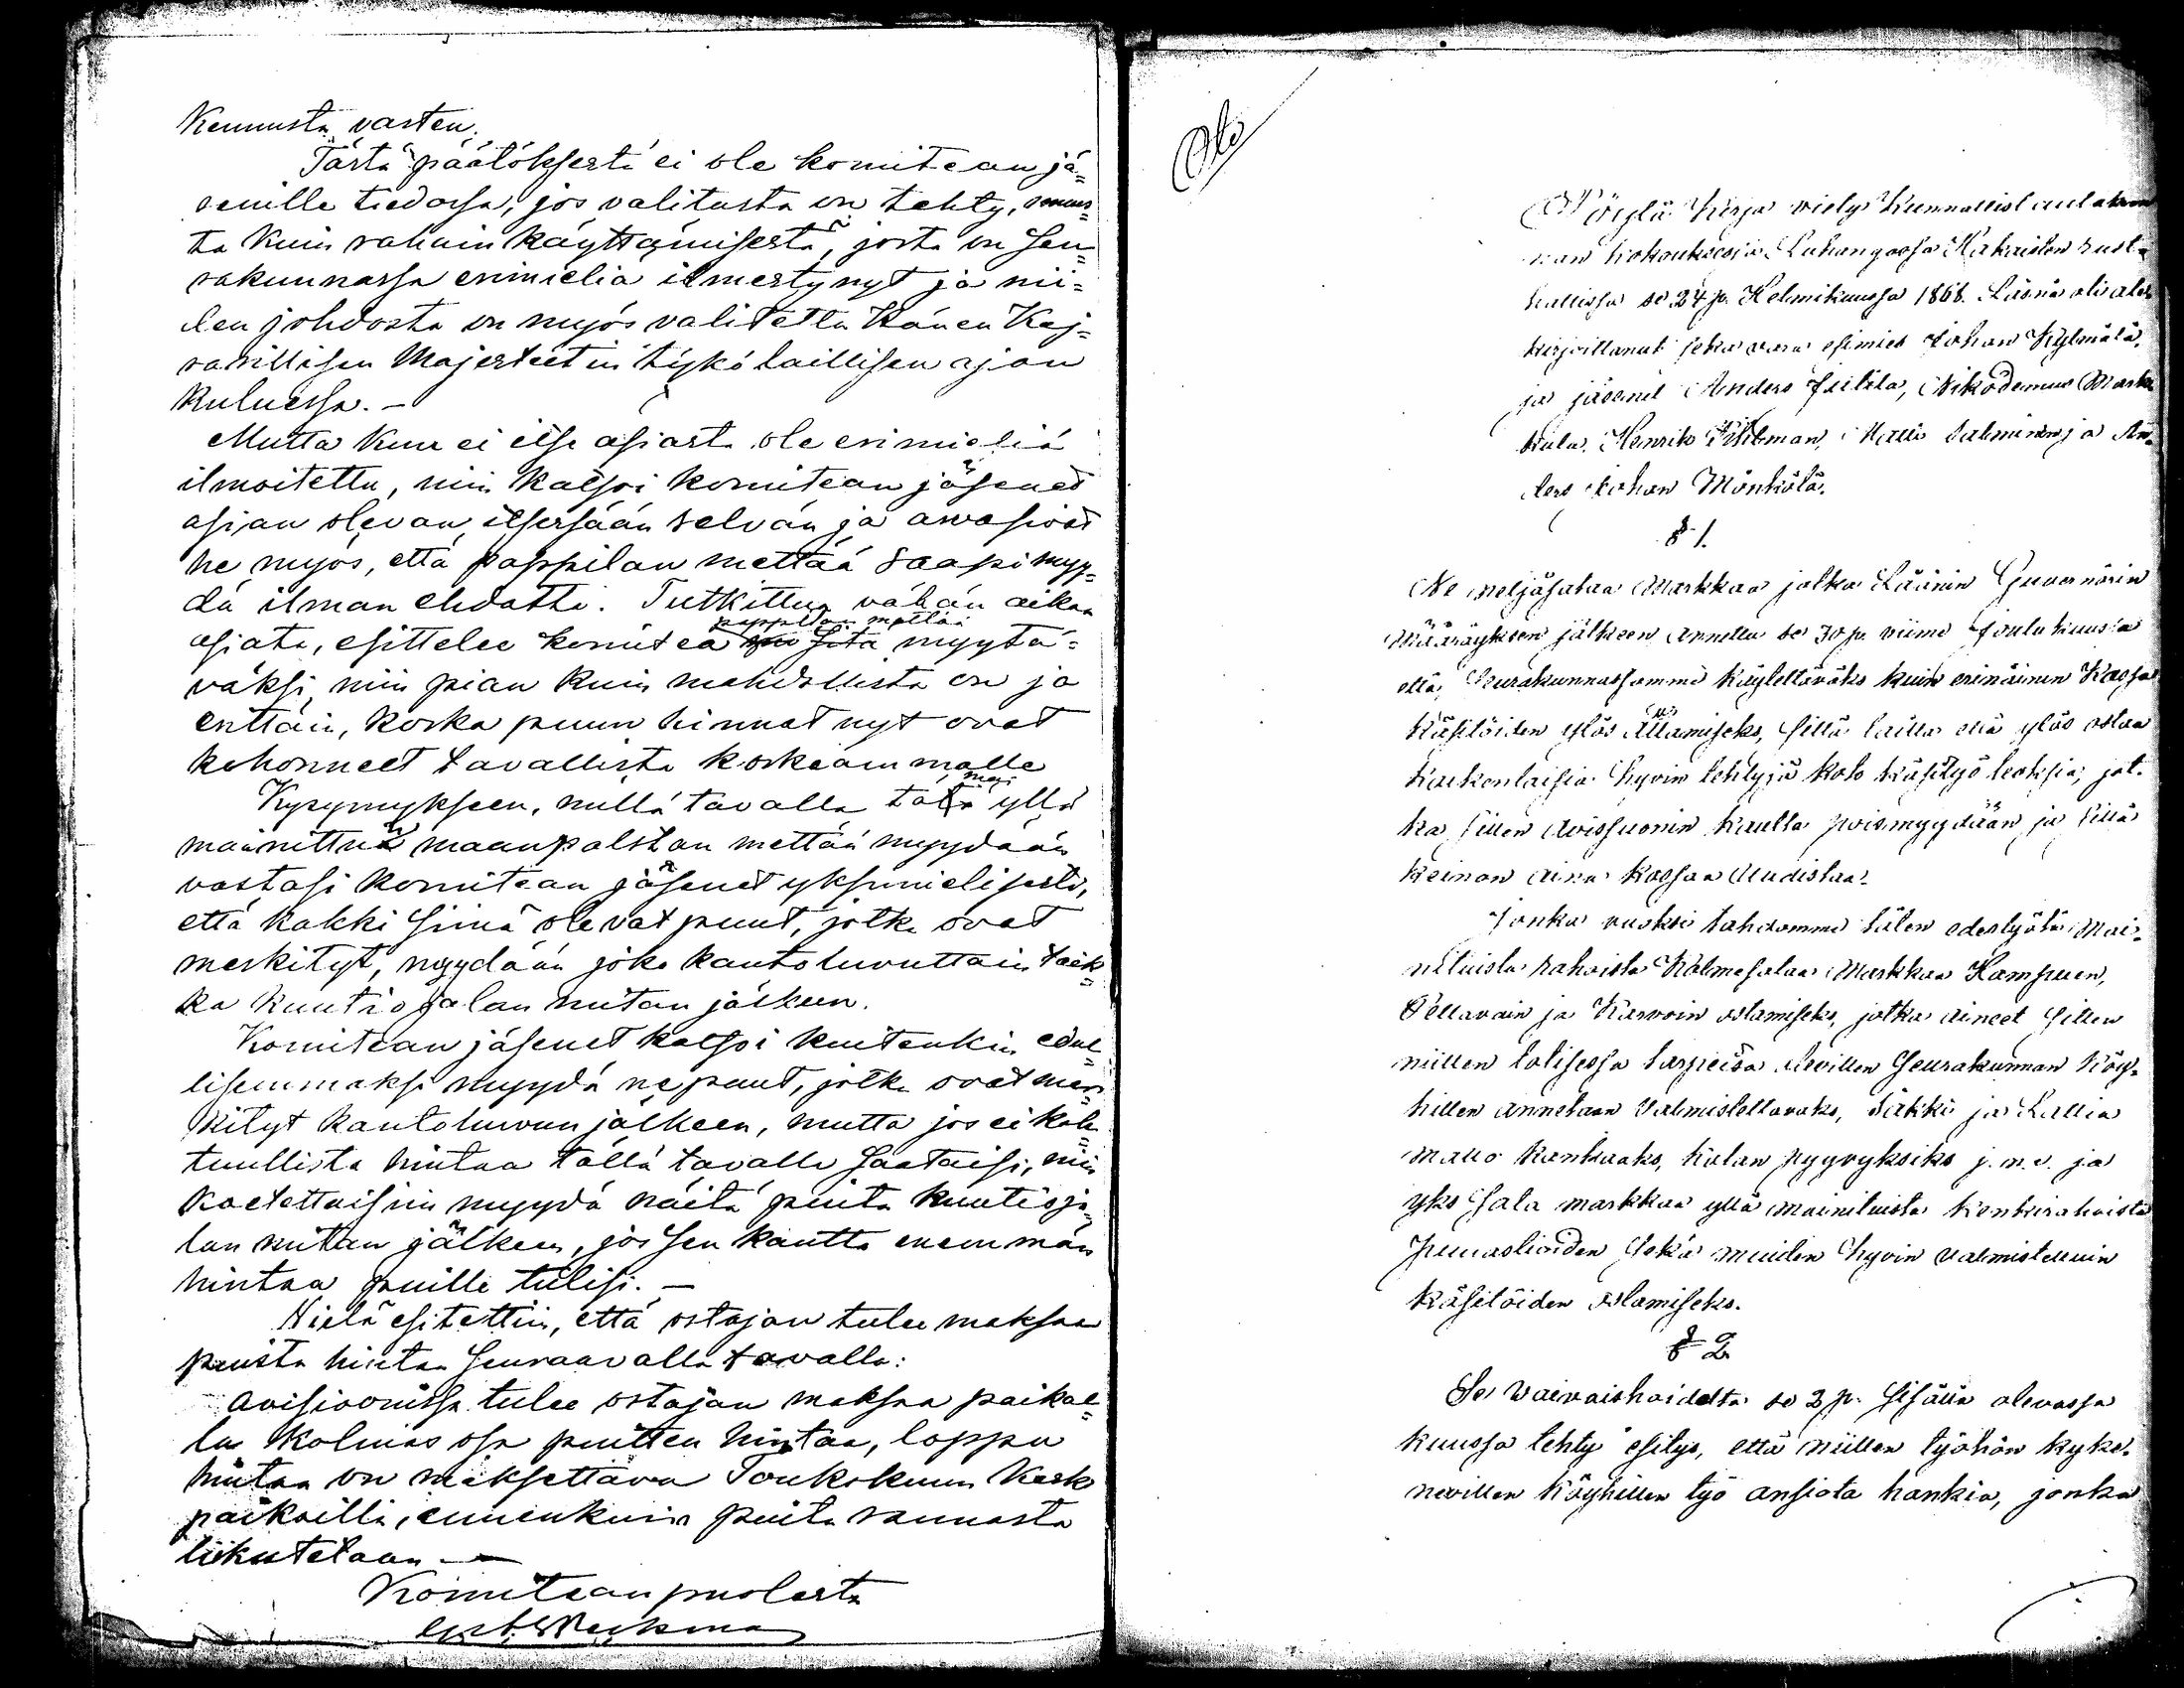 Kennusta vasten.
Tästä päätöksestä ei ole komitean jä=
senille tiedossa, jos valitusta on tehty, muus=
ta kuin rahain käyttämisestä, josta on Seu=
rakunnassa erimieliä ilmestynyt ja nii=
den johdosta on myös valitettu Hänen Kej=
sarillisen Majesteetin tykö laillisen ajan
kuluessa. -
Mutta kun ei itse asiasta ole erimieliä
ilmoitettu, niin katsoi komitean jäsenet
asian olevan itsessään selvän ja arvasivat
he myös, että pappilan mettää saapi myy=
dä ilman ehdotta. Tutkittua vähän aikaa
pappilan mettää
asiata, esittelee komitea sitä myytä=
väksi niin pian kuin mahdollista on ja
enttäin, koska puun hinnat nyt ovat
kohonneet tavallista korkeammalle
Kysymykseen, millä tavalla yllä
mainittua maanpalstan mettää myydään
vastasi komitean jäsenet yksimielisesti,
että kakki siinä olevat puut, jotka ovat
merkityt, myydään joko kantoluvuttain taik=
ka kuutiojalan mitan jälkeen.
Komitean jäsenet katsoi kuitenkin edul=
lisemmaksi myydä ne puut, jotka ovat mer=
kityt kantoluvun jälkeen, mutta jos ei koh=
tuullista hintaa tällä tavalla saataisi, niin
koetettaisiin myydä näitä puita kuutioja=
lan mitan jälkeen, jos sen kautta enemmän
hintaa puille tulisi. -
Vielä esitettiin, että ostajan tulee maksaa
puista hintaa seuraavalla tavalla:
avisioonissa tulee ostajan maksaa paikal=
la kolmas osa puitten hintaa, loppu
hintaa on maksettava Toukokuun kesk
paikoilla, ennenkuin puita rannasta
liikutetaan -
Komitean puolesta
Pöytä kirja pidety Kunnallislautakun
nan kokouksessa Luhangassa Hakaisten rust=
hallissa se 24 p. Helmikuussa 1868. Läsnä oli alle
kirjoittanut sekä vara esimies Johan Kylmälä,
ja jäsenet Anders Juttila, Nikodemus Mark
kula, Henrik Pihlman, Matti Salminen ja An=
ders Johan Mönkölä.
§ 1.
Ne neljäsataa Markkaa jotka Läänin Guvernörin
Määräyksen jälkeen annettu se 30 p. viime Joulukuussa
että Seurakunnassamme käytettäväks kuin erinäinen Kassa
käsitöiden ylös Allamiseks, sillä lailla että ylös ostaa
kaikenlaisia hyvin tehtyjä koto käsityö teoksia, jot=
ka sitten avissuonin kautta poismyydään, ja sillä
keinon aina kassaa Uudistaa.
Jonka vuoksi tahdomme täten edestyötä Mai=
nituista rahoista Kolmesataa Markkaa Hampuen,
Pellavain ja Karvoin ostamiseks, jotka aineet sitten
niillen totisessa tarpeesa olevillen Seurakunnan Köy=
hillen annetaan Valmistettavaks, säkki ja Lattia
matto kankaaks, kalan pyyvyksiks j. n. e. ja
yks sata markkaa yllä mainituista konkirahoista
puuastioiden sekä muiden hyvin valmistettuin
käsitöiden ostamiseks.
§ 2
Se Waivaishoidolta se 2 p. sisällä olevassa
kuussa tehty esitys, että niillen työhön kyke=
nevillen köyhillen työ ansiota hankia, jonka